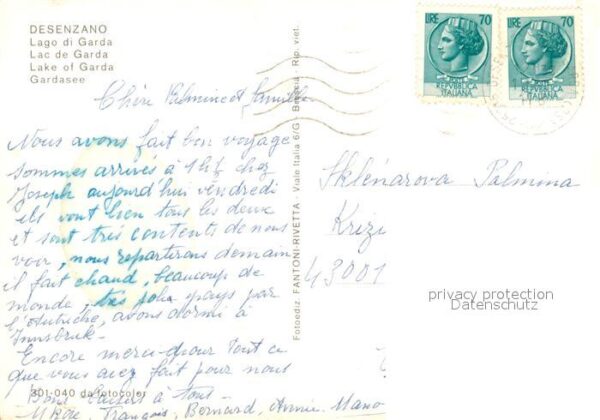 DESENZANO
Lago di Garda
Lac de Garda
Lake of Garda
Gardasee
LIRE 70
REPVBBLICA
ITALIANA
LIRE 70
REPVBBLICA
ITALIANA
Fotoediz. FANTONI-RIVETTA - Viale Italia 6/G - Brescia - Rip. viet.
Chère Palmina et famille
Nous avons fait bon voyage
sommes arrivés à chez
Joseph aujourd'hui vendredi
ils vont bien tous les deux
et sont très contents de nous
voir, nous repartirons demain
il fait chaud, beaucoup de
monde, très jolis pays par
l'autriche, avons dormi à
Innsbruk.
Encore merci pour tout ce
que vous avez fait pour nous
Bons baisers à tous
François, Bernard, Annie,
301-040 da fotocolor
Sklenarova Palmina
Krizi
43001
privacy protection
Datenschutz